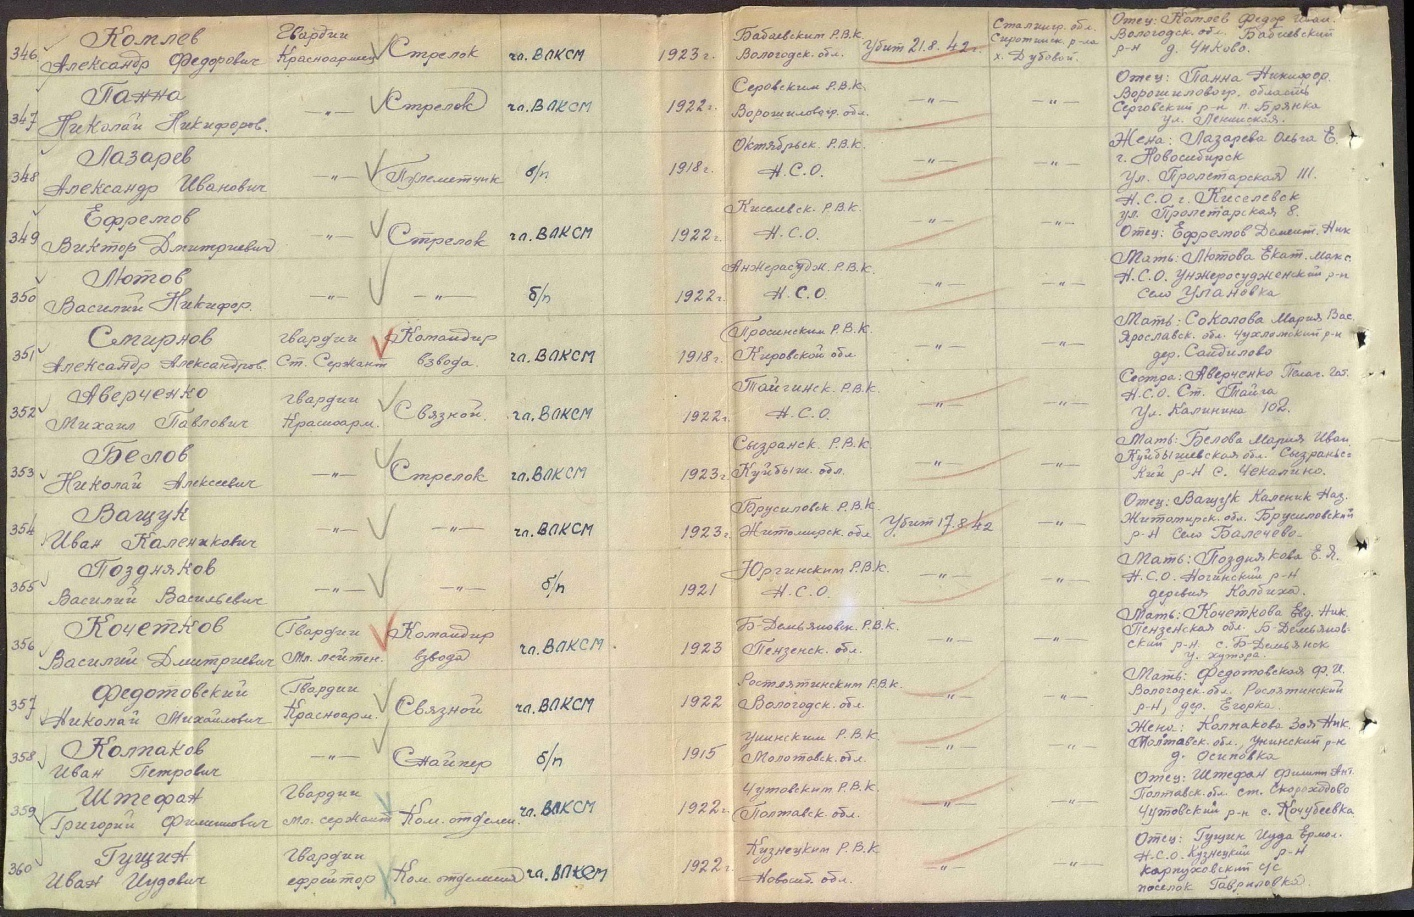 346 Комлев Александр Федорович Гвардии Красноармеец Стрелок чл. ВЛКСМ 1923 г. Бабаевским Р.В.К. Вологодск. обл. Убит 21.8.42 г. Сталингр. обл. Сиротинск. р-на х. Дубовой. Отец: Комлев Федор Иван. Вологодск. обл. Бабаевский р-н д.
347 Панна Николай Никифоров. —"— Стрелок чл. ВЛКСМ 1922 г. Серовским Р.В.К. Ворошиловгр. обл. —"— —"— Отец: Панна Никифор. Ворошиловгр. область Серговский р-н п. Брянка ул. Ленинская.
348 Лазарев Александр Иванович —"— Пулеметчик б/п 1918 г. Октябрьск. Р.В.К. Н.С.О. —"— —"— Жена: Лазарева Ольга Е. г. Новосибирск ул. Пролетарская 111.
349 Ефремов Виктор Дмитриевич —"— Стрелок чл. ВЛКСМ 1922 г. Киселевск. Р.В.К. Н.С.О. —"— —"— Н.С.О г. Киселевск ул. Пролетарская 8. Отец: Ефремов Демент. Ник
350 Лютов Василий Никифор. —"— —"— б/п 1922 г. Анжерасудж. Р.В.К. Н.С.О. —"— —"— Мать: Лютова Екат. Макс. Н.С.О. Унжеросудженский р-н Село Улановка
351 Семирнов Александр Александров. гвардии Ст. Сержант Командир взвода чл. ВЛКСМ 1918 г. Просинским Р.В.К. Кировской обл. —"— —"— Мать: Соколова Мария Вас. Ярославск. обл. Чухломский р-н дер. Сандилово
352 Аверченко Михаил Павлович гвардии Красноарм. Связной чл. ВЛКСМ 1922 г. Тайгинск. Р.В.К. Н.С.О. —"— —"— Сестра: Аверченко Пелаг. Н.С.О. Ст. Тайга Ул. Калинина 102.
353 Белов Николай Алексеевич —"— Стрелок чл. ВЛКСМ 1923 г. Сызранск. Р.В.К. Куйбыш. обл. —"— —"— Мать: Белова Мария Иван. Куйбышевская обл. Сызраньский р-н с. Чекалино.
354 Ващук Иван Каленикович —"— —"— чл. ВЛКСМ 1923 г. Брусиловск Р.В.К. Житомирск. обл Убит 17.8.42 —"— Отец: Ващук Каленик Наз. Житомирск. обл. Брусиловский р-н Село Балечево.
355 Поздняков Василий Васильевич —"— —"— б/п 1921 Юргинским Р.В.К. Н.С.О. —"— —"— Мать: Позднякова Е.Я. Н.С.О. Ногинский р-н деревня Колбиха.
356 Кочетков Василий Дмитриевич Гвардии Мл. лейтен. Командир взвода чл. ВЛКСМ. 1923 Б-Демьяновск. Р.В.К. Пензенск. обл. —"— —"— Мать: Кочеткова Евд. Ник. Пензенская обл. Б-Демьяновский р-н с. Б-Демьянск у. хутора.
357 Федотовский Николай Михайлович Гвардии Красноарм. Связной чл. ВЛКСМ 1922 Рослятинским Р.В.К. Вологодск. обл. —"— —"— Мать: Федотовская Ф.И. Вологодск. обл. Рослятинский р-н, дер. Егорка.
358 Колпаков Иван Петрович —"— Снайпер б/п 1915 Уинским Р.В.К. Молотовск. обл. —"— —"— Жена: Колпакова Зоя Ник. Молтавск. обл., Уинский р-н д. Осиповка
359 Штефан Григорий Филиппович Гвардии Мл. сержант Ком. отделен. чл. ВЛКСМ 1922 г. Чутовским Р.В.К. Полтавск. обл. —"— —"— Отец: Штефан Филипп Ант. Полтавск. обл. ст. Скороходово Чутовский р-н с. Кочубеевка
360 Гущин Иван Иудович Гвардии ефрейтор Ком. отделения чл. ВЛКСМ 1922 г. Кузнецким Р.В.К. Новосиб. обл. —"— —"— Отец: Гущин Иуда Ермол. Н.С.О. Кузнецкий р-н Карпуховский с/с поселок Гавриловка.